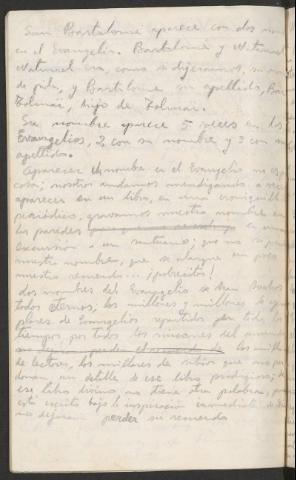 San Bartolomé aparece con dos nom
en el Evangelio. Bartolomé y Natanael
Natanael era, como si dijéramos, su nom
de pila, y Bartolomé su apellido, Bar
Tolmai, hijo de Tolmai.
Su nombre aparece 5 veces en los
Evangelios, 2 con su nombre y 3 con su
apellido.
Aparecer un nombre en el Evangelio no es
cosa; nosotros andamos mendigando a
aparecer en un libro, en una
periódico, gravamos nuestro nombre en
las paredes en una
excursión a un santuario; que no se
nuestro nombre, que se alargue un poco
nuestro recuerdo... ¡pobrecitos!
dos nombres del Evangelio se han hecho
todos eternos, los millones y millones de ejem
plares de Evangelios repartidos por todos los
tiempos, por todos los rincones del mundo
los miles
de lectores, los millares de sabios que no per
donan un detalle de ese libro prodigioso; de
ese libro divino, no tiene una palabra,
está escrito bajo la inspiración inmediata de
nos dejaran perder su recuerdo